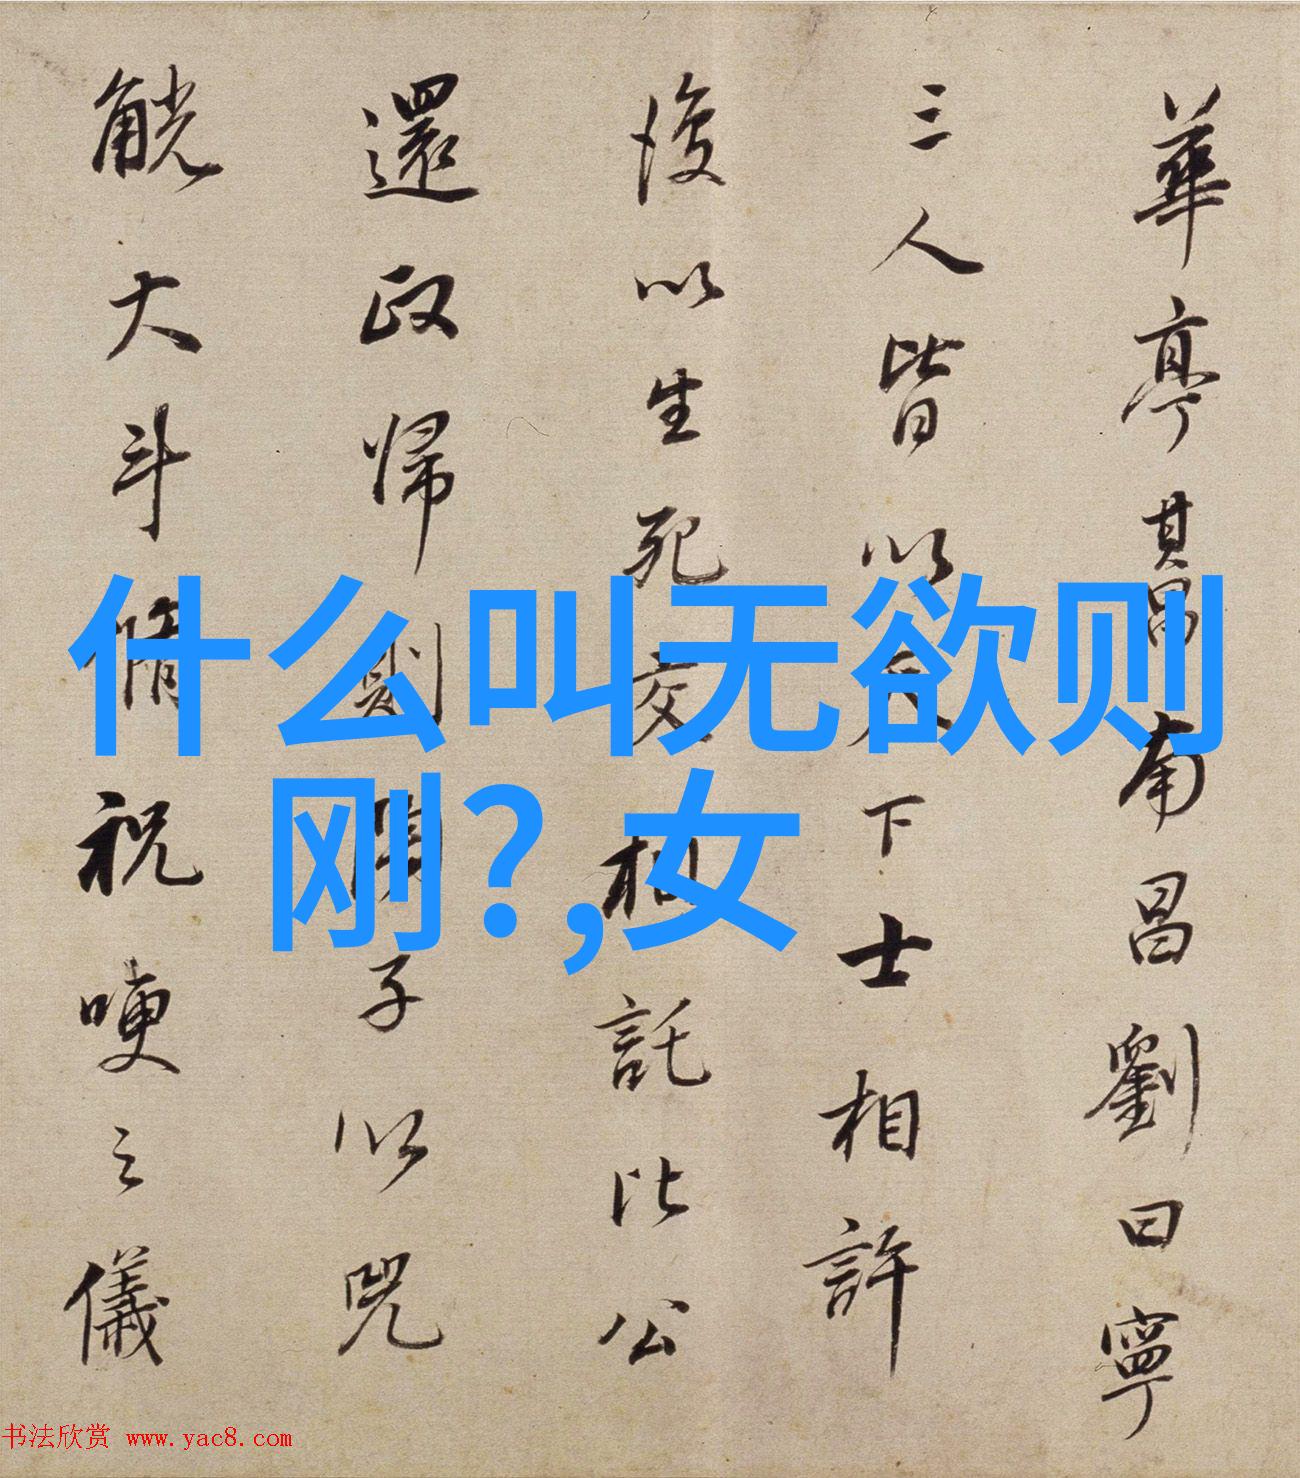 華亭其昌南昌劉曰寧
三人皆以天下士相許
後以生死交相託比公
還政歸則閔子以兕
觥大斗脩祝哽之儀
什么叫无欲则
刚?,女
书法欣赏 www.yac8.com